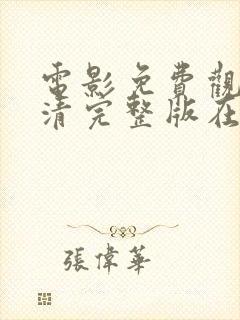 電影免費觀
清完整版在
張偉華